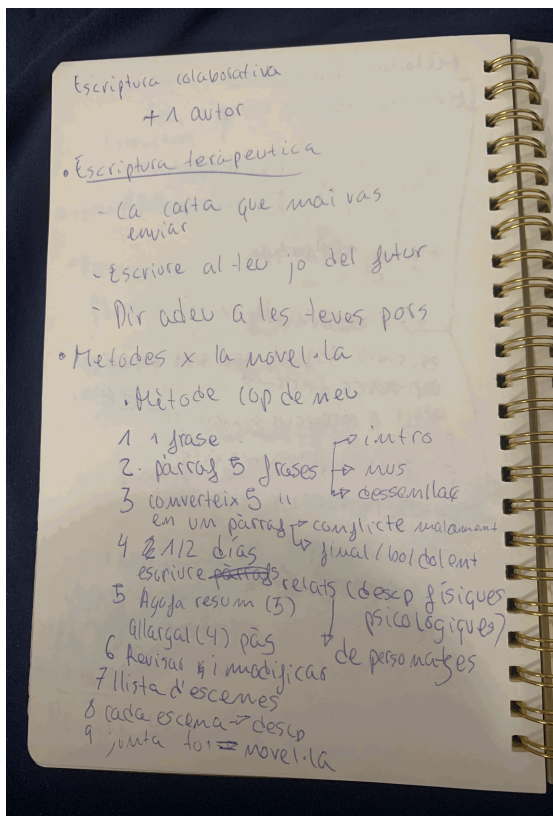 Escriptura colaborativa
+ 1 autor
• Escriptura terapeutica
- La carta que mai vas
enviar
- Escriure al teu jo del futur
- Dir adeu a les teves pors
• Metodes x la novel·la
• Mètode cop de neu
1 1 frase
2. pàrraf 5 frases → intro
→ nus
→ dessenllaç
3 converteix 5 "
en un pàrraf → conflicte malament
→ final/bo/dolent
4 1/2 días
escriure relats (descp físiques
psicològiques)
→ de personatges
5 Agafa resum (3)
allargal (4) pàg
6 Revisar i modificar
7 llista d'escenes
8 cada escena → descp
9 junta tot = novel·la